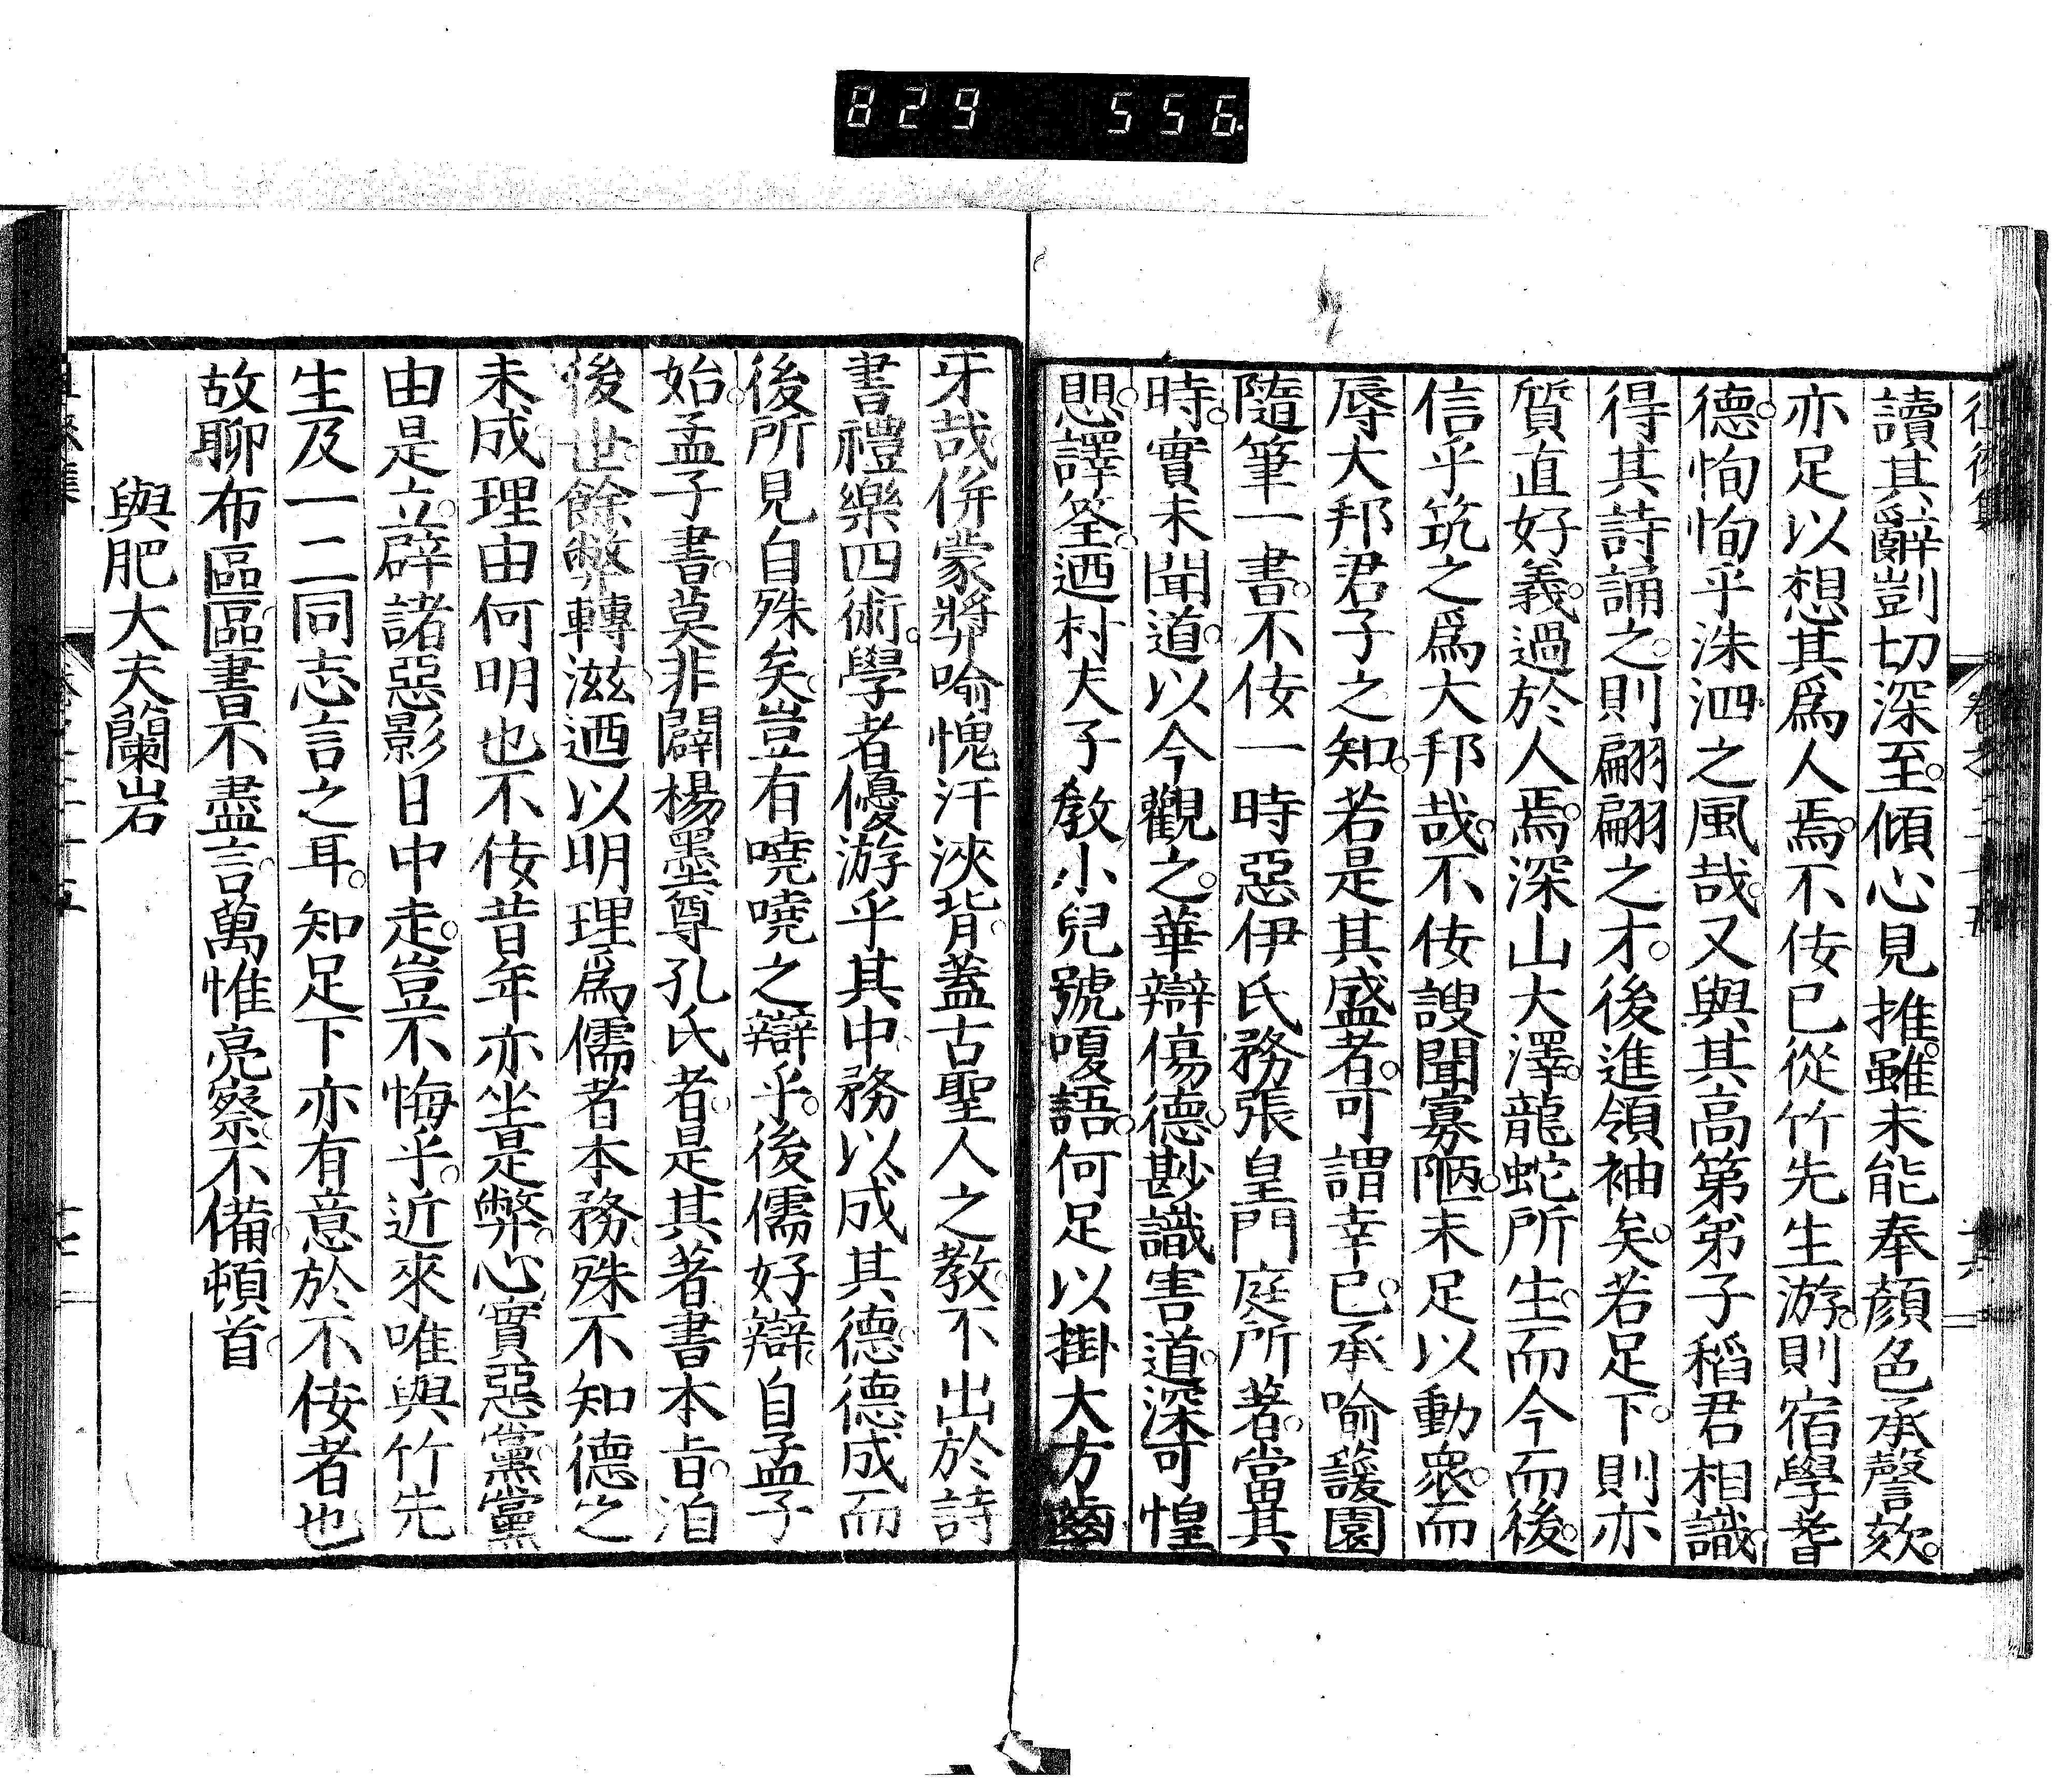 829 556
讀其辭剴切深至。傾心見推。雖未能奉顏色承謦欬。
亦足以想其爲人焉。不佞已從竹先生游。則宿學耆
德。恂恂乎洙泗之風哉。又與其高第弟子稻君相識。
得其詩誦之。則翩翩之才。後進領袖矣。若足下。則亦
質直好義。過於人焉。深山大澤。龍蛇所生。而今而後。
信乎筑之爲大邦哉。不佞謏聞寡陋。未足以動衆。而
辱大邦君子之知。若是其盛者。可謂幸已。承喻蘐園
隨筆一書。不佞一時惡伊氏務張皇門庭所著。當其
時。實未聞道。以今觀之。華辯傷德。尠識害道。深可惶
愳。譯筌。迺村夫子教小兒號嗄語。何足以掛大方齒
牙哉。併蒙奬喻愧汗浹背。蓋古聖人之教。不出於詩
書禮樂四術。學者優游乎其中。務以成其德。德成而
後所見自殊矣。豈有嘵嘵之辯乎。後儒好辯。自孟子
始。孟子書。莫非闢楊墨尊孔氏者。是其著書本旨。洎
後世。餘弊轉滋。迺以明理爲儒者本務。殊不知德之
未成。理由何明也。不佞昔年亦坐是弊。心實惡黨。黨
由是立。辟諸惡影日中走。豈不悔乎。近來唯與竹先
生及一二同志言之耳。知足下亦有意於不佞者也
故聊布區區。書不盡言。萬惟亮察。不備。頓首。
與肥大夫蘭岩